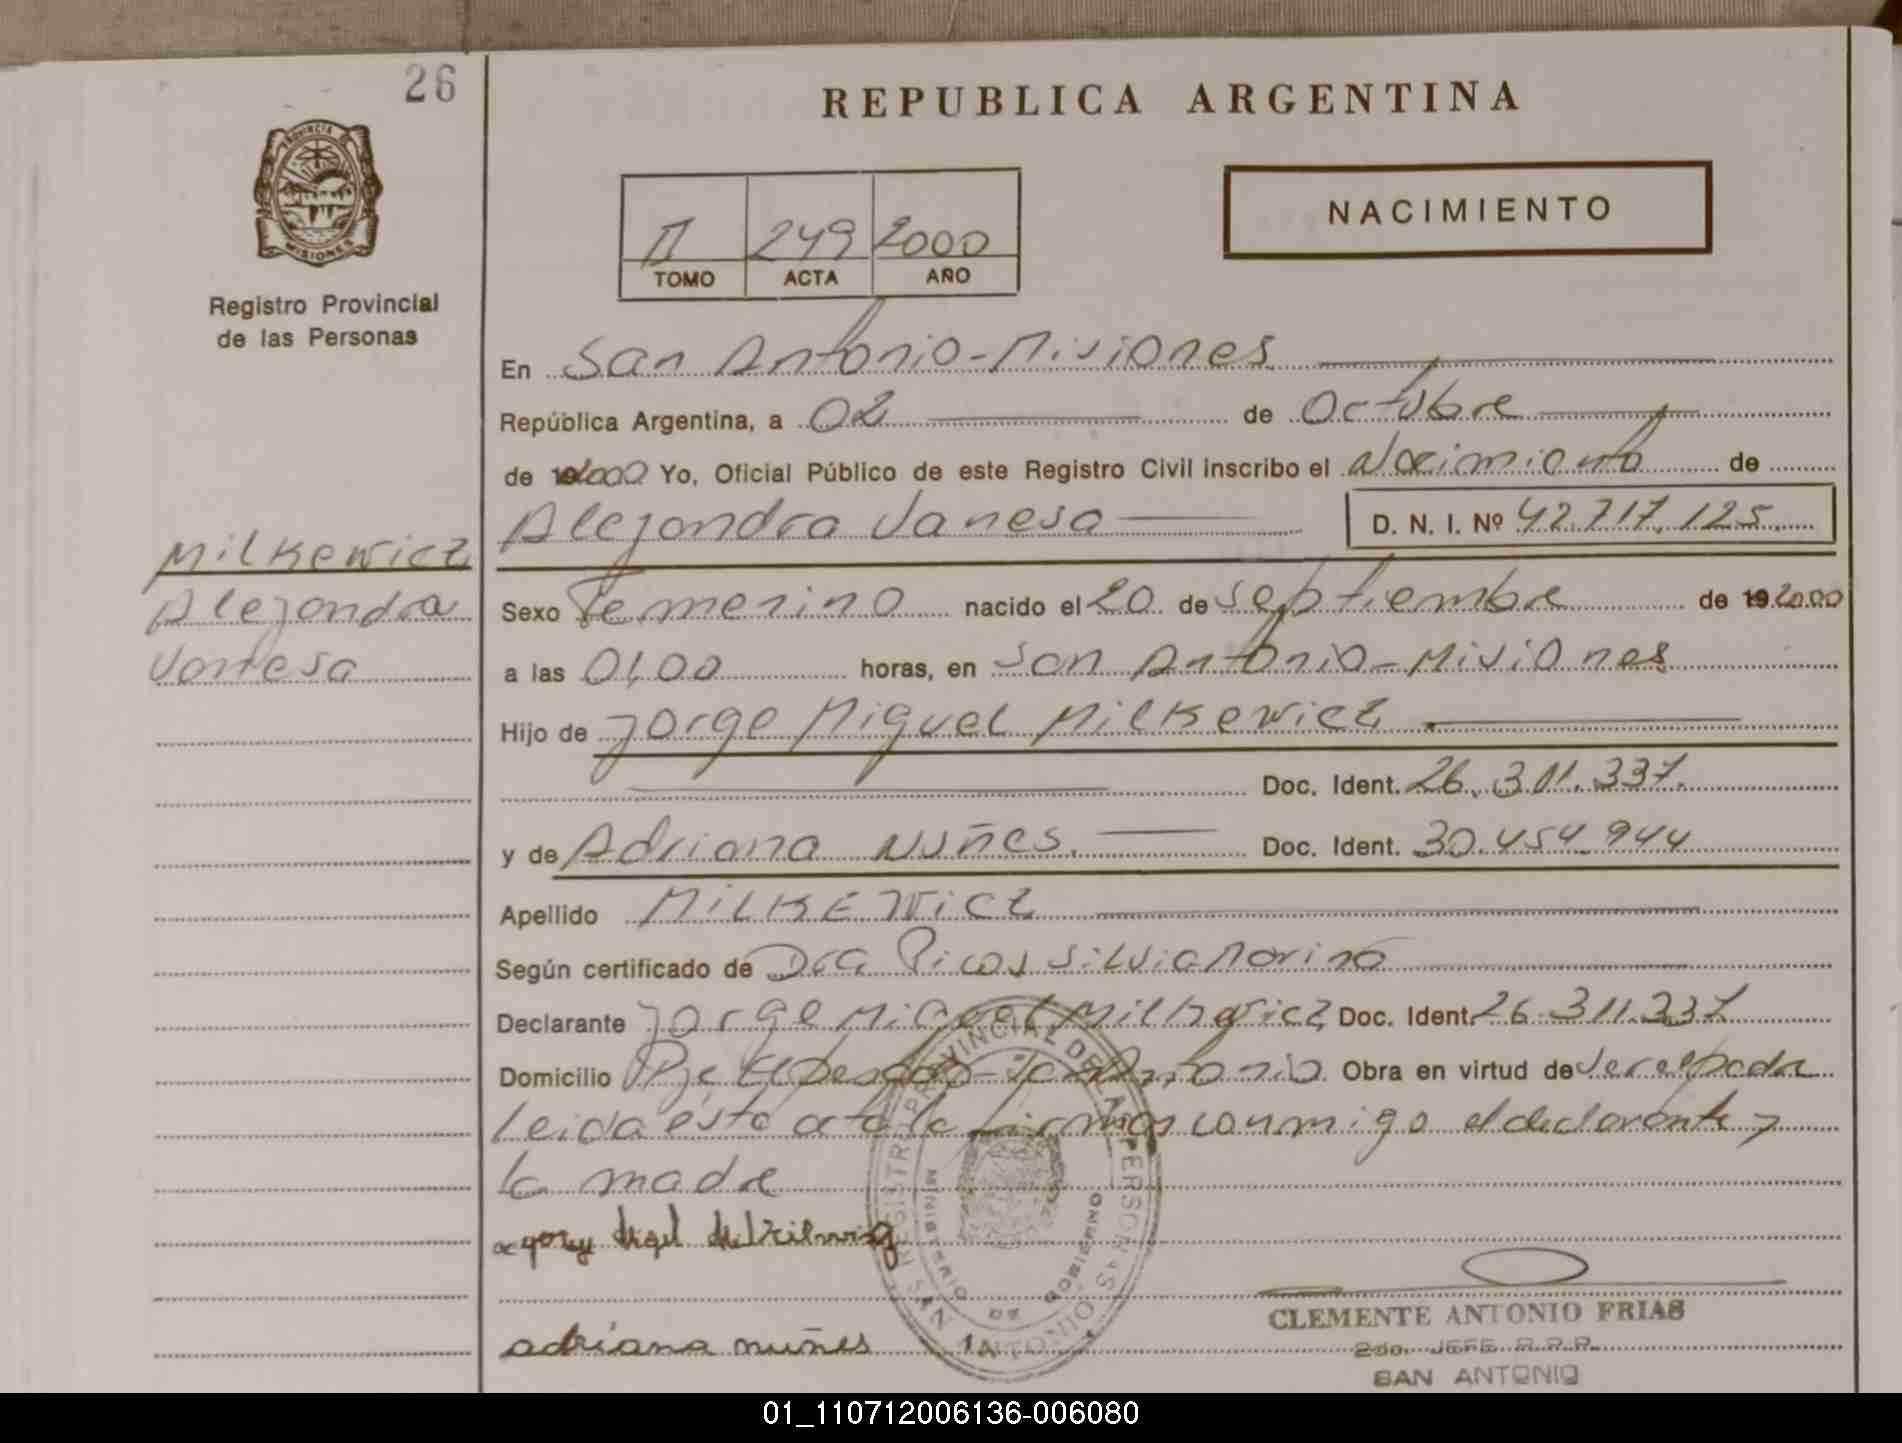 26
REPUBLICA ARGENTINA
PROVINCIA DE
MISIONES
Registro Provincial
de las Personas
II 249 2000
TOMO ACTA AÑO
NACIMIENTO
En San Antonio - Misiones
República Argentina, a 02 de Octubre
de 192000 Yo, Oficial Público de este Registro Civil inscribo el Nacimiento de
Alejandra Vanesa D. N. I. Nº 42.717.125
Milkewicz
Alejandra
Vanesa
Sexo Femenino nacido el 20 de Septiembre de 192000
a las 01,00 horas, en San Antonio - Misiones
Hijo de Jorge Miguel Milkewicz
Doc. Ident. 26.311.337.
y de Adriana Nuñes. Doc. Ident. 30.454.944
Apellido MILKEWICZ
Según certificado de Dra Picos Silvia Marina
Declarante Jorge Miguel Milkewicz Doc. Ident. 26.311.337
Domicilio Pje San Antonio Obra en virtud de
Leida esta acta la firman conmigo el declarante y
la madre
adriana nuñes
REGISTRO PROVINCIAL DE LAS PERSONAS
MINISTERIO DE GOBIERNO
SAN ANTONIO
CLEMENTE ANTONIO FRIAS
2do. JEFE R.P.P.
SAN ANTONIO
01_110712006136-006080